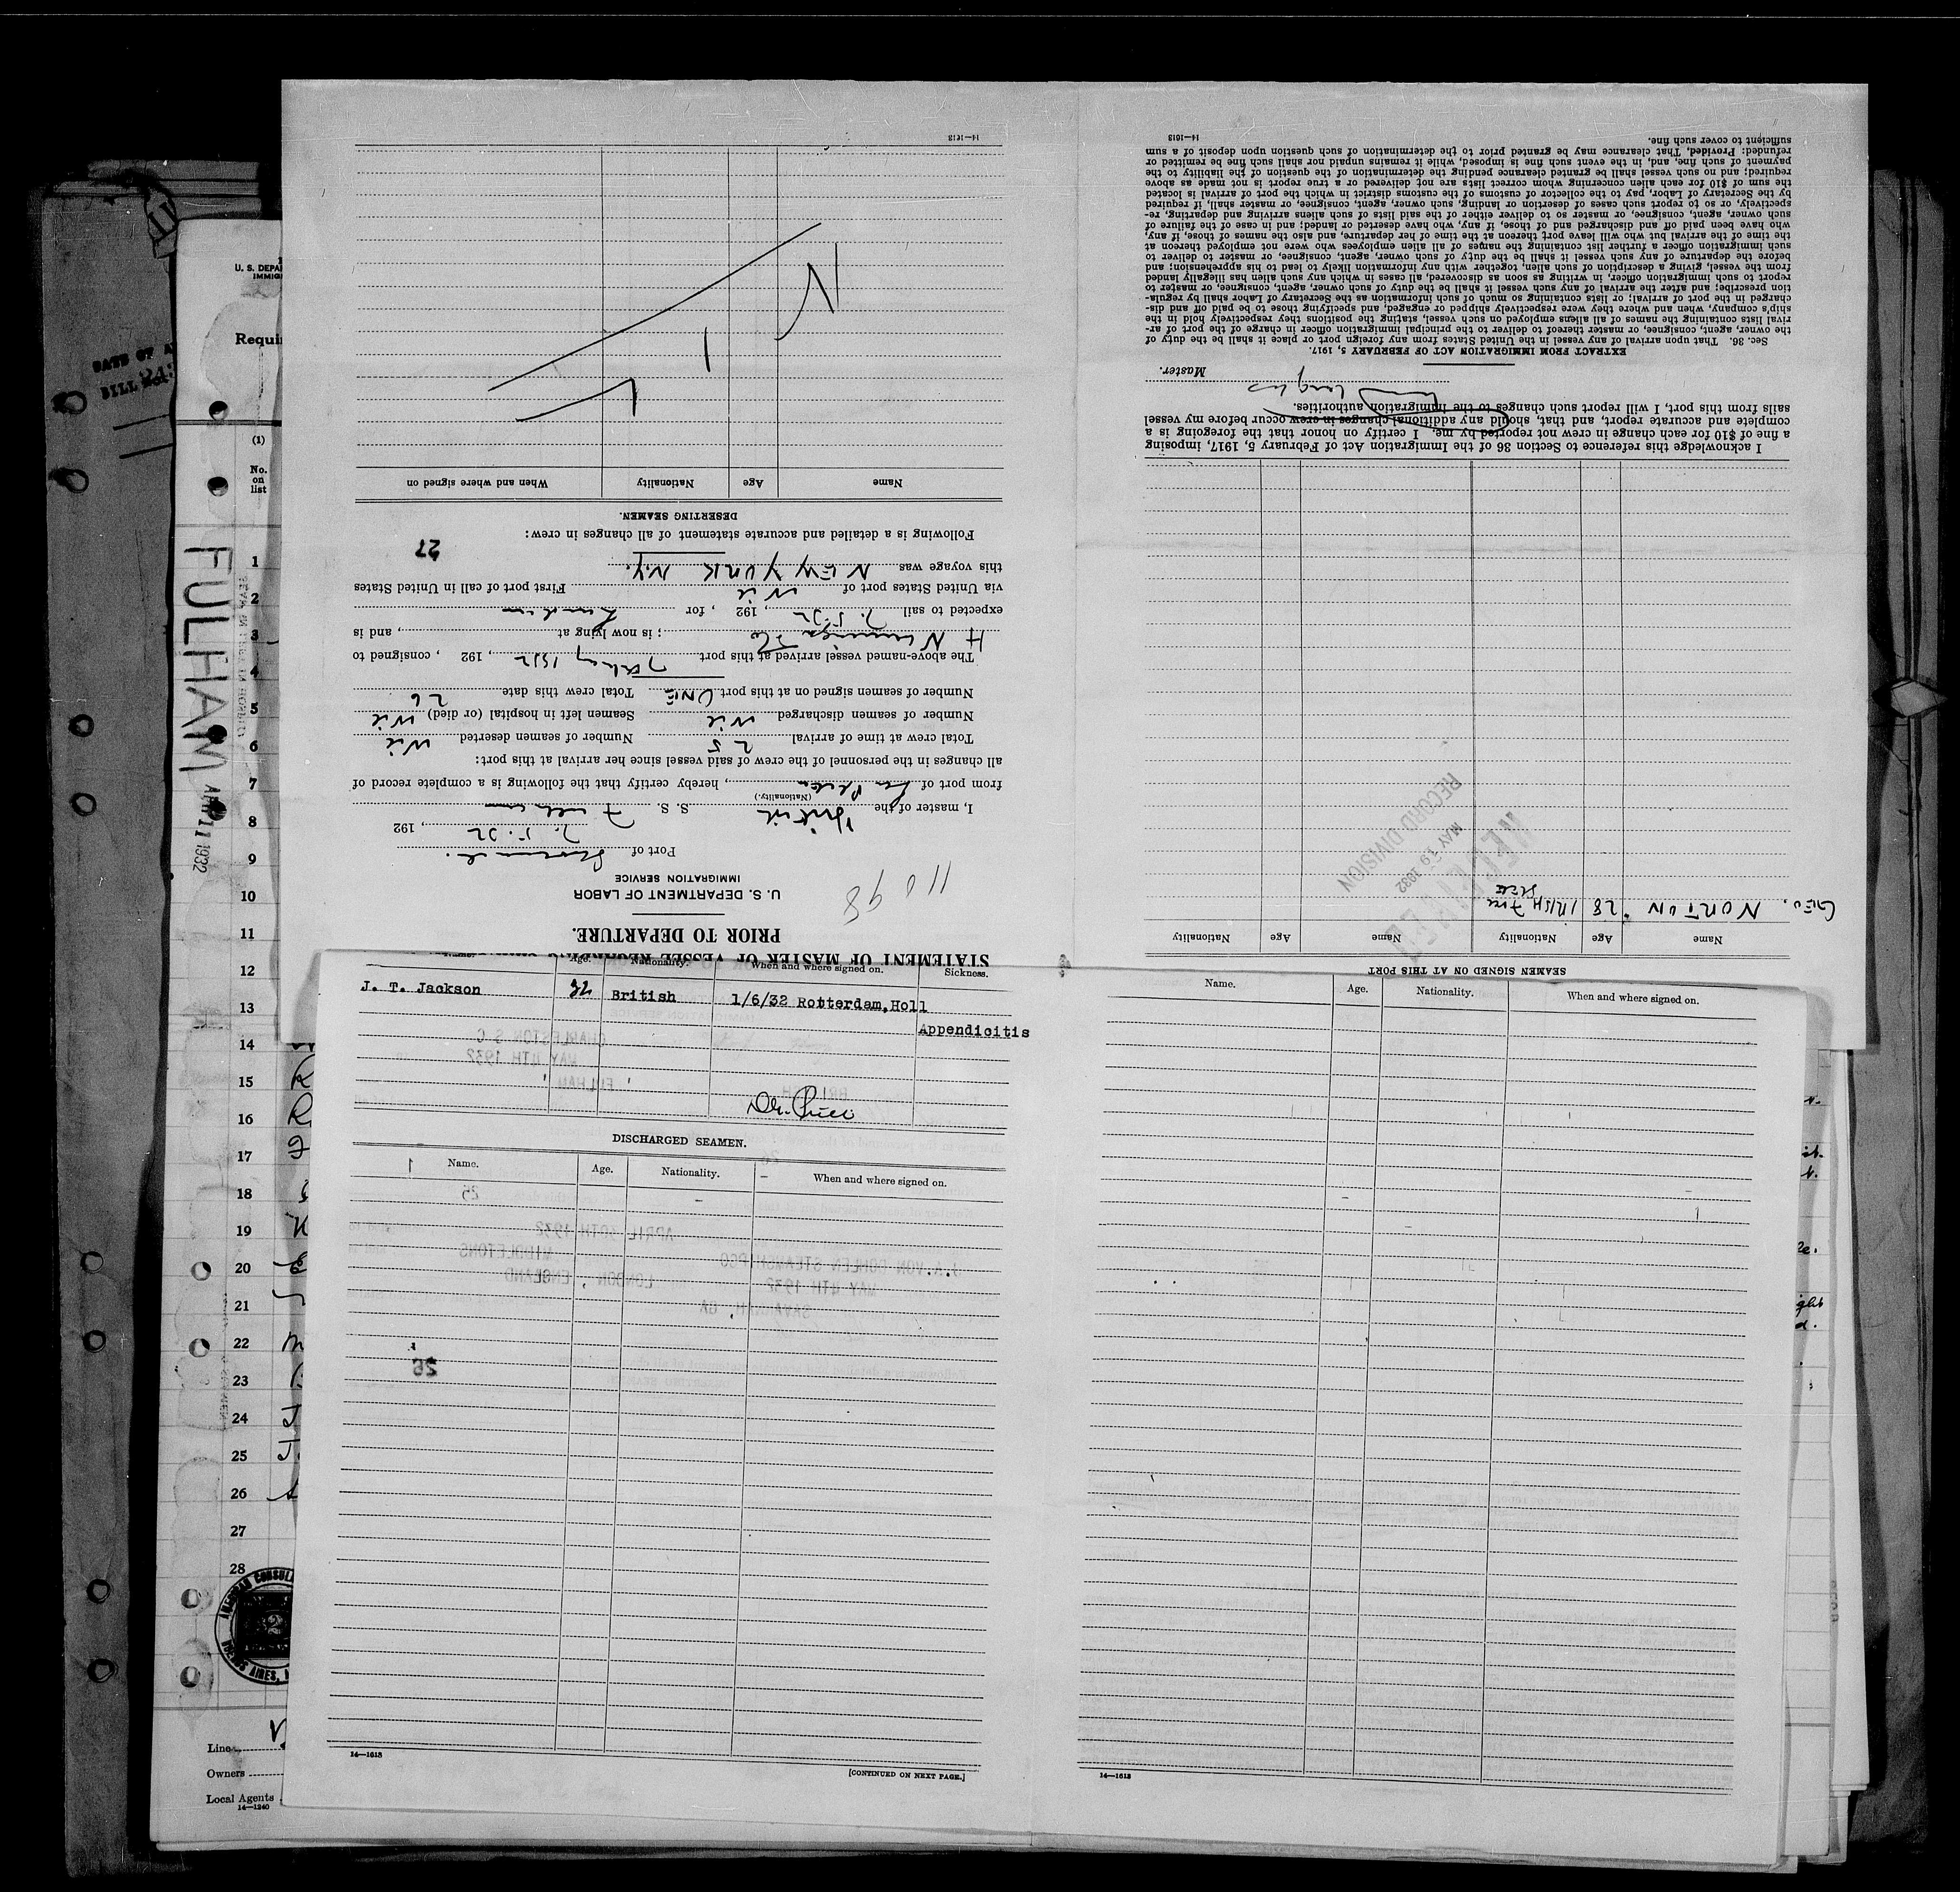 STATEMENT OF MASTER OF VESSEL REGARDING
PRIOR TO DEPARTURE.
U. S. DEPARTMENT OF LABOR
IMMIGRATION SERVICE
11098
Port of Savannah. 7.5.32, 192
I, master of the British S. S. Fulham
(Nationality.)
from port of, hereby certify that the following is a complete record of
all changes in the personnel of the crew of said vessel since her arrival at this port:
Total crew at time of arrival 25 Number of seamen deserted Nil
Number of seamen discharged Nil Seamen left in hospital (or died) Nil
Number of seamen signed on at this port ONE Total crew this date 26
The above-named vessel arrived at this port 7th May 1932, 192 , consigned to
; is now lying at , and is
expected to sail 7.5.32, 192 , for London
via United States port of Nil First port of call in United States
this voyage was NEW YORK N.Y.
27
Following is a detailed and accurate statement of all changes in crew:
DESERTING SEAMEN.
Name Age Nationality When and where signed on
N I L
14—1613
SEAMEN SIGNED ON AT THIS PORT
Name Age Nationality Name Age Nationality
GEO. NORTON 28 IRISH Free
RECEIVED
MAY 19 1932
RECORD DIVISION
I acknowledge this reference to Section 36 of the Immigration Act of February 5, 1917, imposing
a fine of $10 for each change in crew not reported by me. I certify on honor that the foregoing is a
complete and accurate report, and that, should any additional changes in crew occur before my vessel
sails from this port, I will report such changes to the immigration authorities.
Master.
EXTRACT FROM IMMIGRATION ACT OF FEBRUARY 5, 1917.
Sec. 36. That upon arrival of any vessel in the United States from any foreign port or place it shall be the duty of
the owner, agent, consignee, or master thereof to deliver to the principal immigration officer in charge of the port of ar-
rival lists containing the names of all aliens employed on such vessel, stating the positions they respectively hold in the
ship's company, when and where they were respectively shipped or engaged, and specifying those to be paid off and dis-
charged in the port of arrival; or lists containing so much of such information as the Secretary of Labor shall by regula-
tion prescribe; and after the arrival of any such vessel it shall be the duty of such owner, agent, consignee, or master to
report to such immigration officer, in writing as soon as discovered, all cases in which any such alien has illegally landed
from the vessel, giving a description of such alien, together with any information likely to lead to his apprehension; and
before the departure of any such vessel it shall be the duty of such owner, agent, consignee, or master to deliver to
such immigration officer a further list containing the names of all alien employees who were not employed thereon at
the time of the arrival but who will leave port thereon at the time of her departure, and also the names of those, if any,
who have been paid off and discharged and of those, if any, who have deserted or landed; and in case of the failure of
such owner, agent, consignee, or master so to deliver either of the said lists of such aliens arriving and departing, re-
spectively, or so to report such cases of desertion or landing, such owner, agent, consignee, or master shall, if required
by the Secretary of Labor, pay to the collector of customs of the customs district in which the port of arrival is located
the sum of $10 for each alien concerning whom correct lists are not delivered or a true report is not made as above
required; and no such vessel shall be granted clearance pending the determination of the question of the liability to the
payment of such fine, and, in the event such fine is imposed, while it remains unpaid nor shall such fine be remitted or
refunded: Provided, That clearance may be granted prior to the determination of such question upon deposit of a sum
sufficient to cover such fine.
14—1613
Age. Nationality. When and where signed on. Sickness.
J. T. Jackson 32 British 1/6/32 Rotterdam,Holl
Appendicitis
Dr. Price
DISCHARGED SEAMEN.
Name. Age. Nationality. When and where signed on.
CHARLESTON S C
MAY 4TH 1932
FULHAM
BRITISH
25
APRIL 30TH 1932
J.A.VON DOHLEN STEAMSHIPCO MIDDLETONS
MAY 4TH 1932 LONDON, ENGLAND
SAVANNAH, GA
26
14—1613
[CONTINUED ON NEXT PAGE.]
Name. Age. Nationality. When and where signed on.
14—1613
U. S. DEPA
IMMIG
Requi
DATE OF A
BILL
(1)
No.
on
list
FULHAM
APR 11 1932
1
2
3
4
5
6
7
8
9
10
11
12
13
14
15
16
17
18
19
20
21
22
23
24
25
26
27
28
AMERICAN CONSULA
BUENOS AIRES,
Line
Owners
Local Agents
14—1240